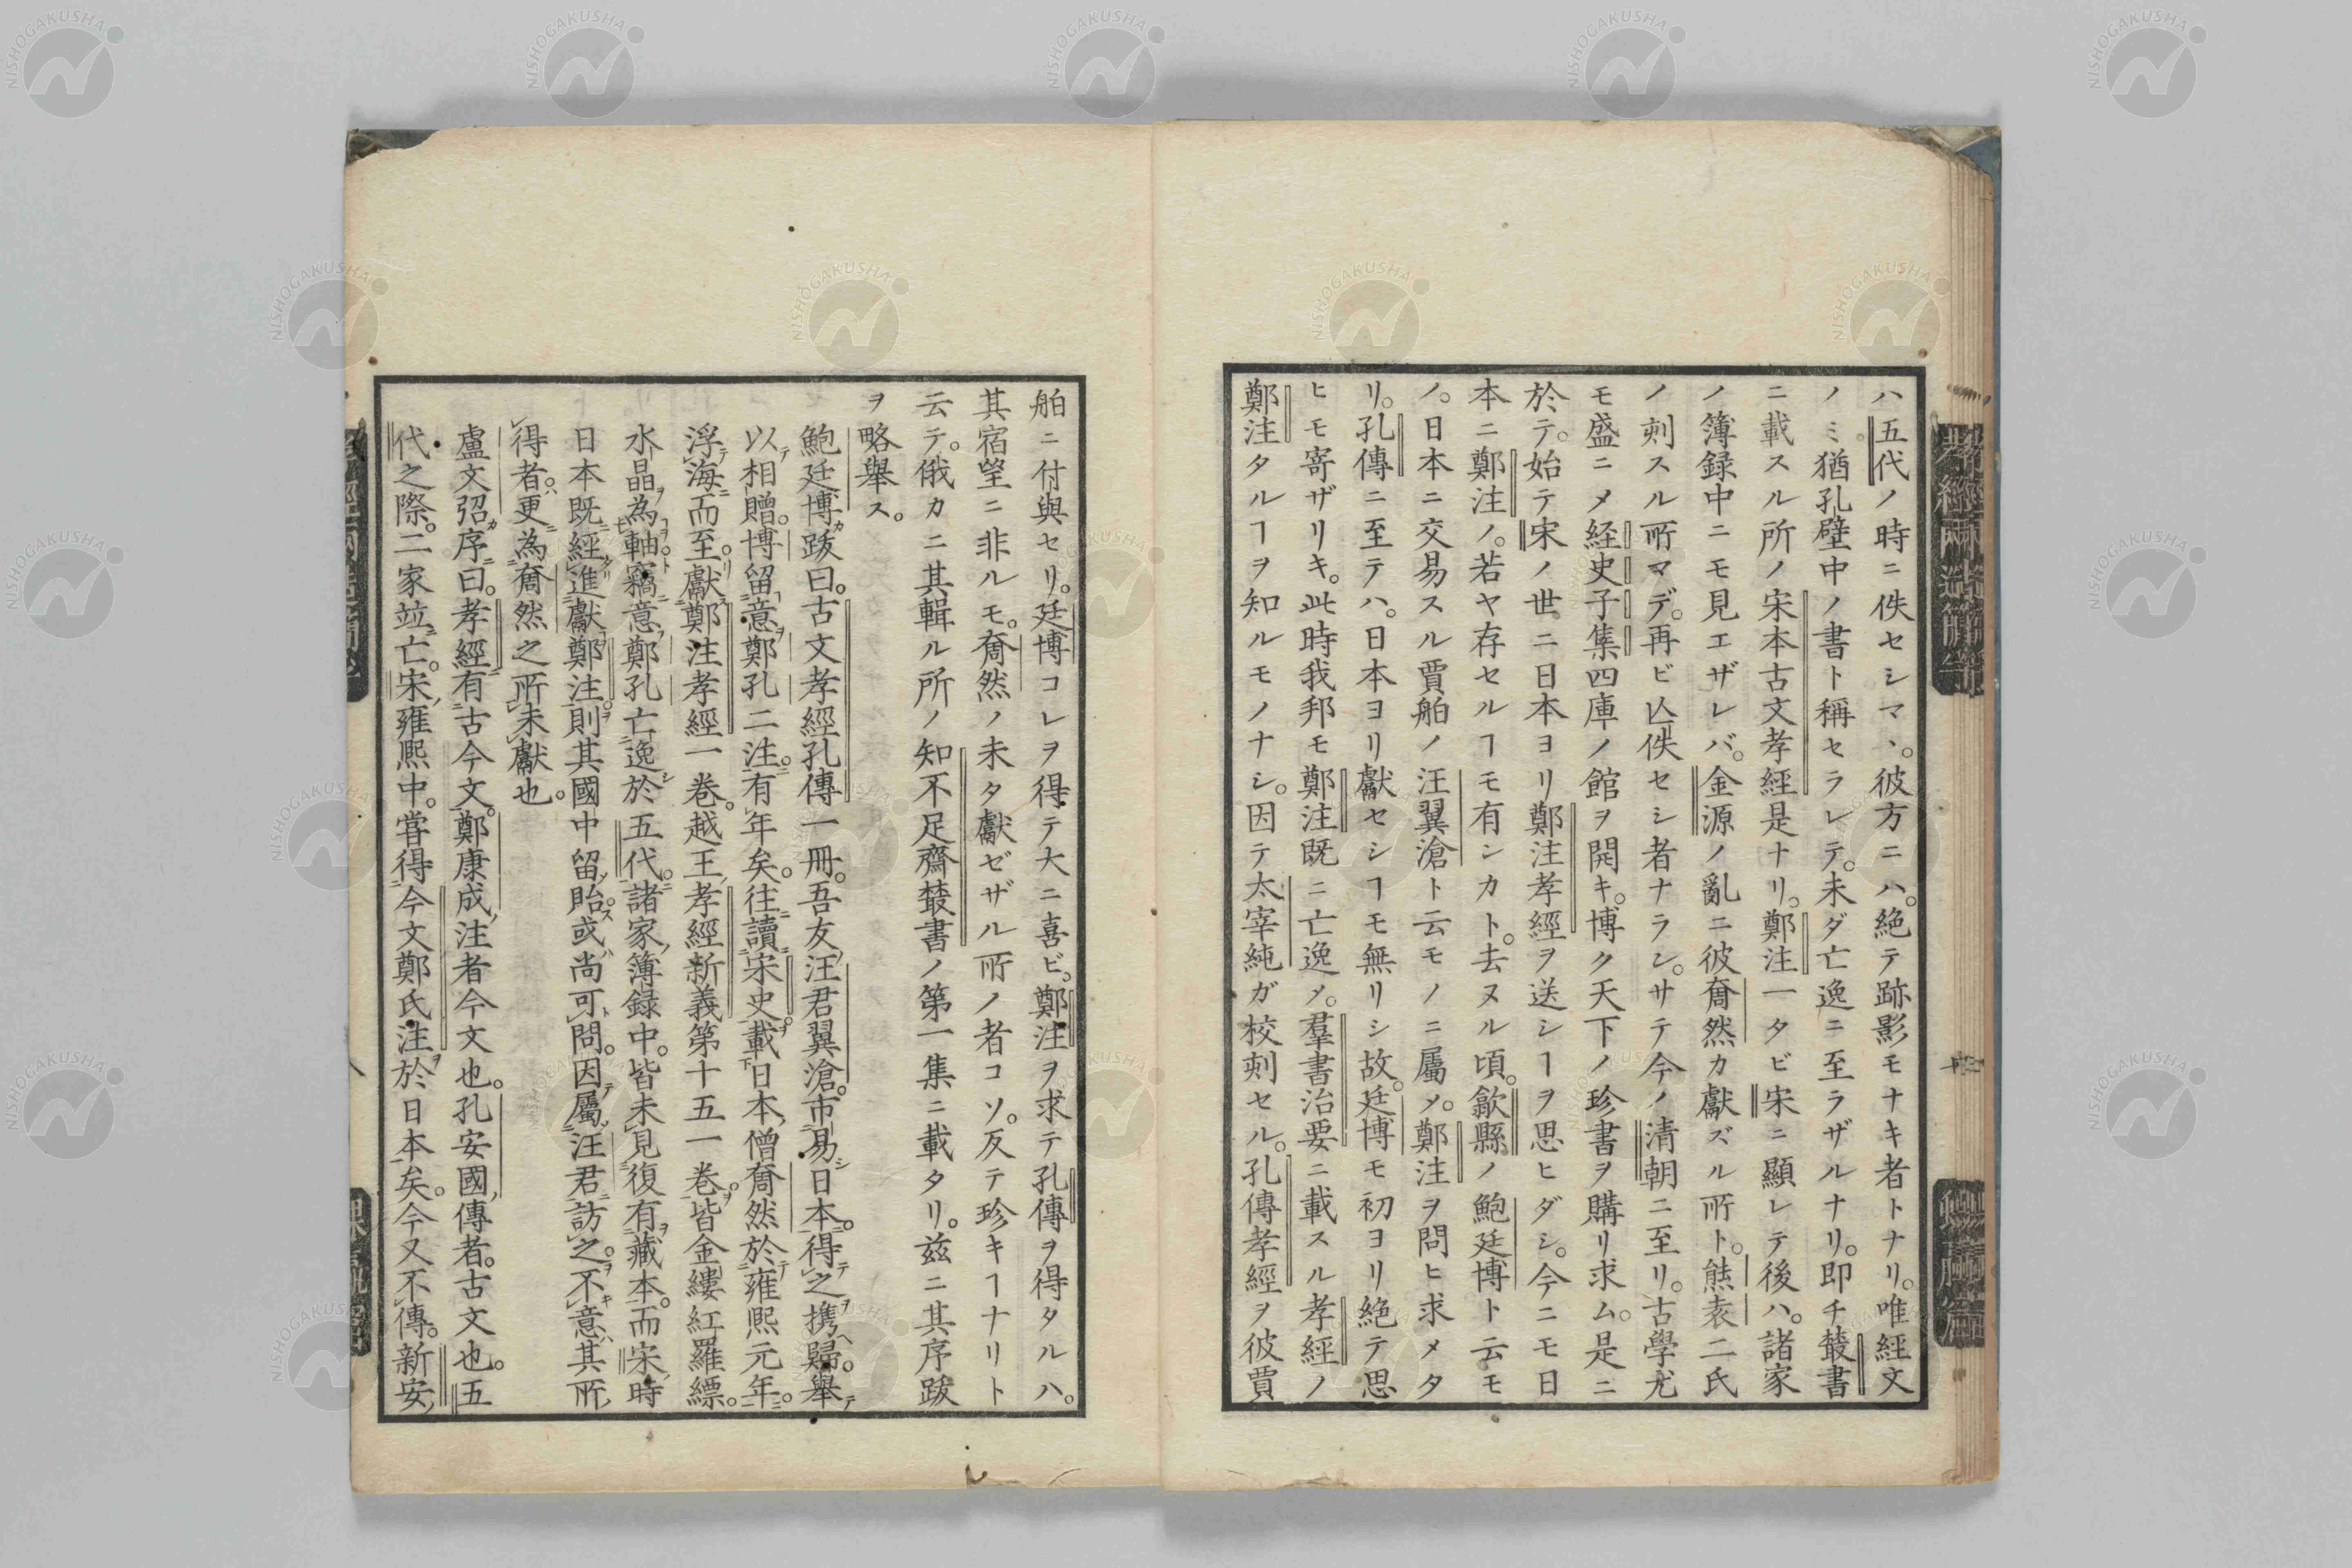 ハ五代ノ時ニ佚セシマヽ。彼方ニハ。絶テ跡影モナキ者トナリ。唯經文
ノミ。猶孔壁中ノ書ト稱セラレテ。未ダ亡逸ニ至ラザルナリ。即チ叢書
ニ載スル所ノ宋本古文孝經是ナリ。鄭注一タビ宋ニ顯レテ後ハ。諸家
ノ簿録中ニモ見エザレバ。金源ノ亂ニ彼奝然カ獻ズル所ト。熊袁二氏
ノ刺スル所マデ。再ビ亾佚セシ者ナラン。サテ今ノ清朝ニ至リ。古學尤
モ盛ニメ経史子集四庫ノ館ヲ開キ。博ク天下ノ珍書ヲ購リ求ム。是ニ
於テ。始テ宋ノ世ニ日本ヨリ鄭注孝經ヲ送シヿヲ思ヒダシ。今ニモ日
本ニ鄭注ノ。若ヤ存セルヿモ有ンカト。去ヌル頃。歙縣ノ鮑廷博ト云モ
ノ。日本ニ交易スル賈舶ノ汪翼滄ト云モノニ屬メ。鄭注ヲ問ヒ求メタ
リ。孔傳ニ至テハ。日本ヨリ獻セシヿモ無リシ故。廷博モ初ヨリ絶テ思
ヒモ寄ザリキ。此時我邦モ鄭注既ニ亡逸メ。羣書治要ニ載スル孝經ノ
鄭注タルヿヲ知ルモノナシ。因テ太宰純ガ校刺セル。孔傳孝經ヲ彼賈
舶ニ付與セリ。廷博コレヲ得テ大ニ喜ビ。鄭注ヲ求テ孔傳ヲ得タルハ。
其宿望ニ非ルモ。奝然ノ未タ獻ゼザル所ノ者コソ。反テ珍キヿナリト
云テ。俄カニ其輯ル所ノ知不足齋叢書ノ第一集ニ載タリ。兹ニ其序跋
ヲ略舉ス。
鮑廷博カ跋曰。古文孝經孔傳一冊。吾友汪君翼滄。市易日本。得之携歸。舉
以相贈。博留意鄭孔二注。有年矣。往讀宋史。載日本僧奝然於雍熙元年。
浮海而至。獻鄭注孝經一巻。越王孝經新義第十五一巻。皆金縷紅羅縹。
水晶為軸。竊意鄭孔亡逸於五代。諸家簿録中。皆未見復有藏本。而宋時
日本既經進獻鄭注。則其國中留貽。或尚可問。因屬汪君訪之。不意其所
得者。更為奝然之所未獻也。
盧文弨序曰。孝經有古今文。鄭康成注者今文也。孔安國傳者。古文也。五
代之際。二家竝亡。宋雍熙中。甞得今文鄭氏注於日本矣。今又不傳。新安